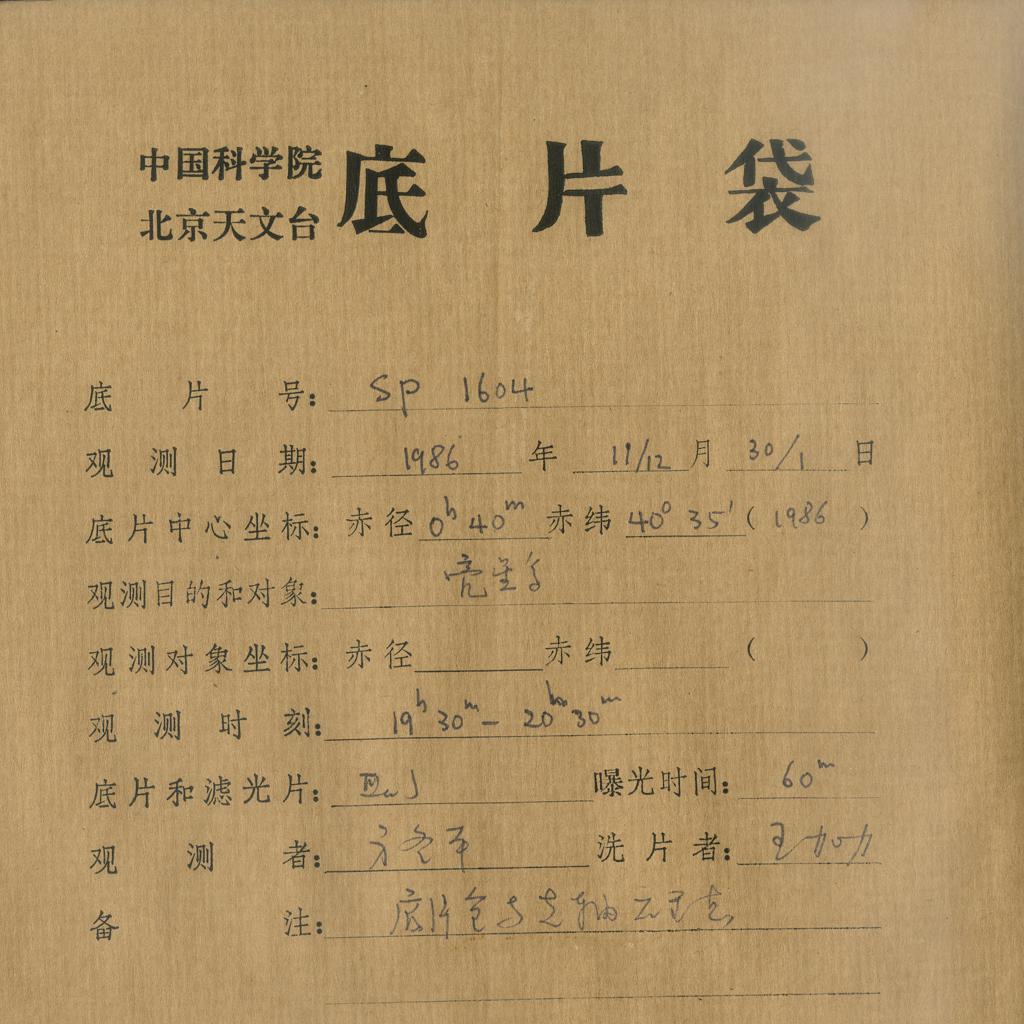 中国科学院
北京天文台
底片袋
底片号: Sp 1604
观测日期: 1986 年 11/12 月 30/1 日
底片中心坐标: 赤径 0h 40m 赤纬 40° 35' ( 1986 )
观测目的和对象:
观测对象坐标: 赤径 赤纬 ( )
观测时刻: 19h 30m - 20h 30m
底片和滤光片: 曝光时间: 60m
观测者: 洗片者: 王
备注: 底片